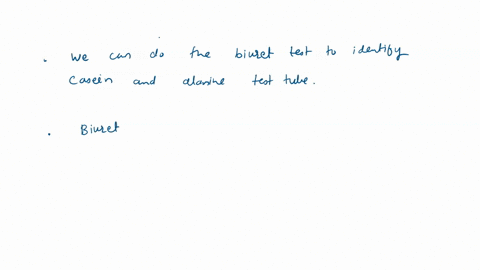 . We can do the biuret test to identify
Casein and alanine test tube.
. Biuret